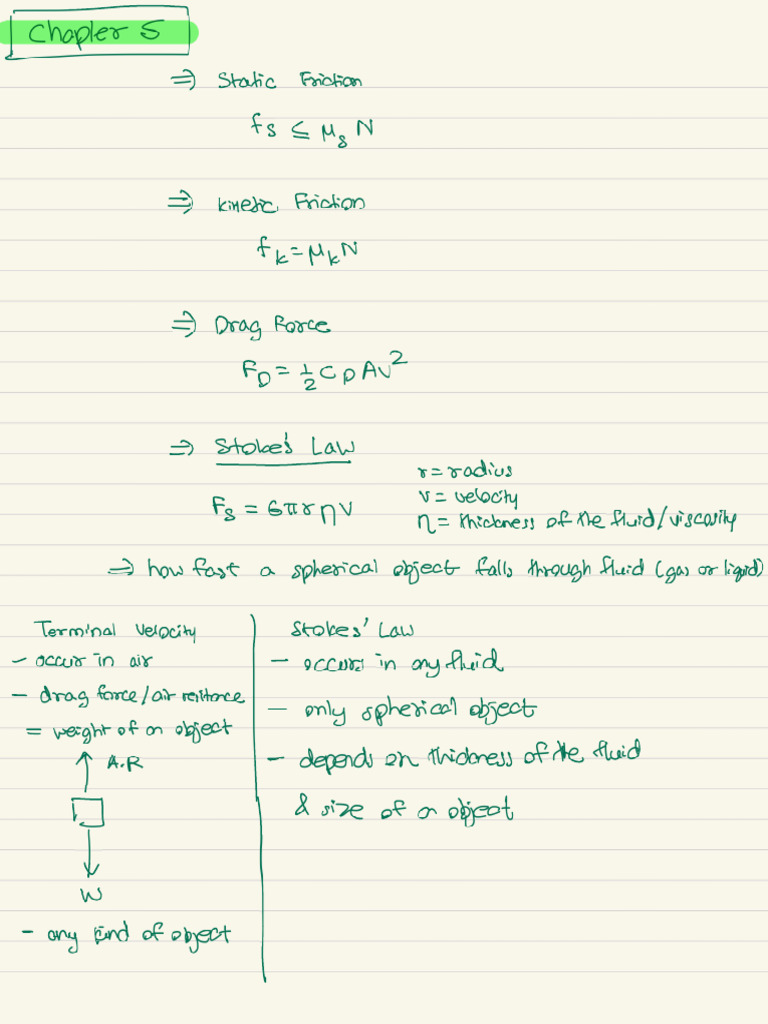 Chapter 5
⇒ Static Friction
fs ≤ μs N
⇒ kinetic Friction
fk = μk N
⇒ Drag Force
FD = 1/2 C ρ A v²
⇒ Stoke's Law
r = radius
v = velocity
Fs = 6πrηv
η = thickness of the fluid/viscosity
⇒ how fast a spherical object falls through fluid (gas or liquid)
Terminal Velocity
- occur in air
- drag force/air resitance
= weight of an object
A.R
W
- any kind of object
Stokes' Law
- occurs in any fluid
- only spherical object
- depends on thickness of the fluid
& size of an object